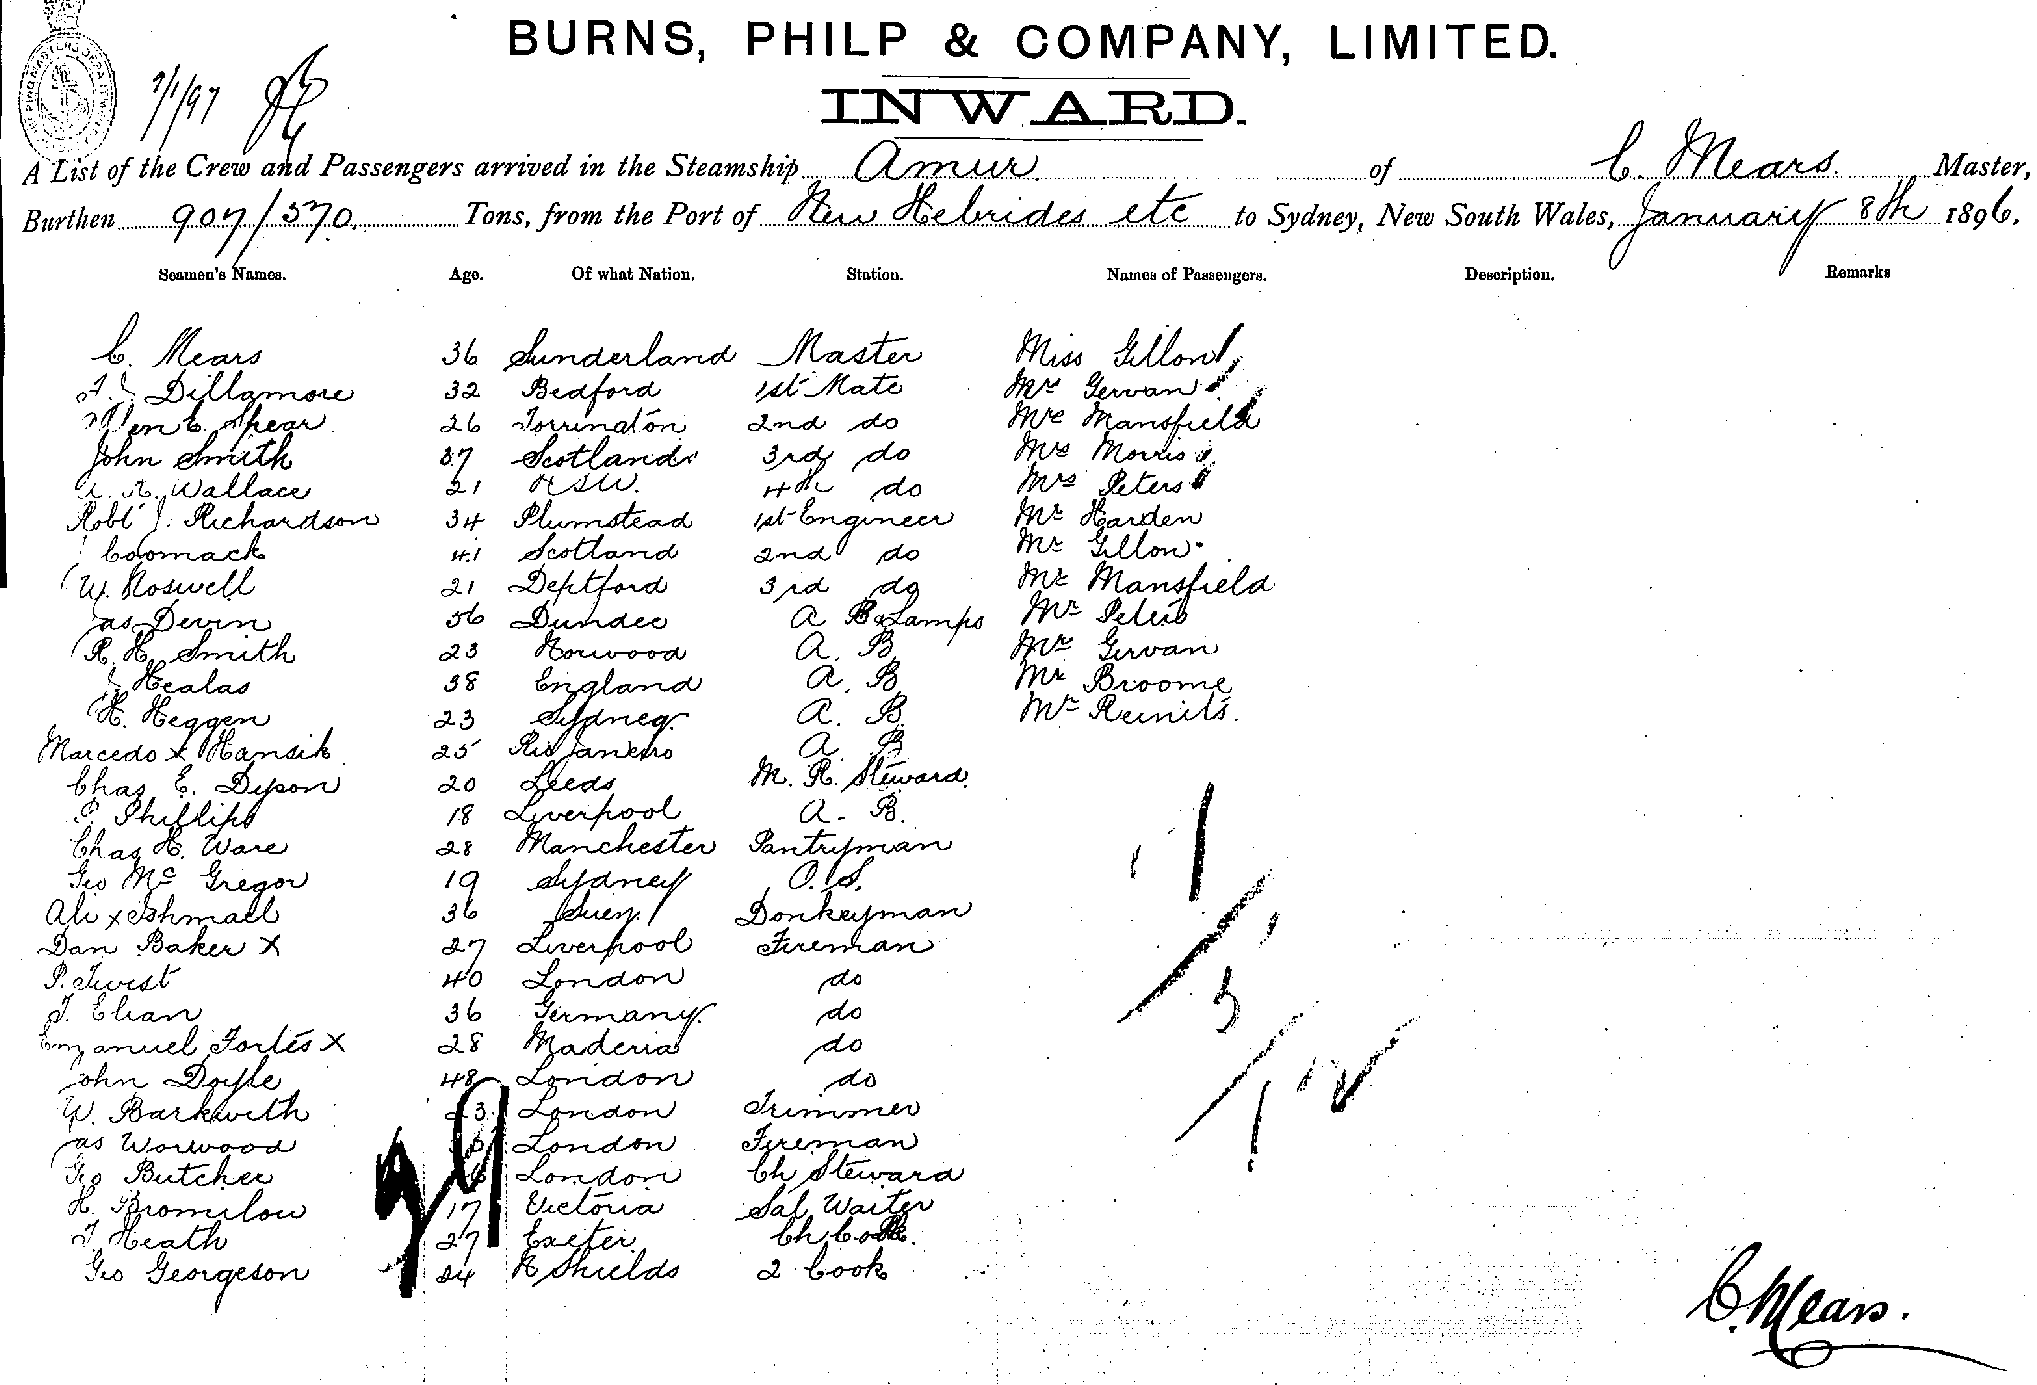 BURNS, PHILP & COMPANY, LIMITED.
INWARD.
7/1/97
A List of the Crew and Passengers arrived in the Steamship Amur of C. Mears. Master,
Burthen 907/570. Tons, from the Port of New Hebrides etc to Sydney, New South Wales, January 8th 1896.
Seamen's Names. Age. Of what Nation. Station. Names of Passengers. Description. Remarks
C. Mears 36 Sunderland Master Miss Gillon
Dillamore 32 Bedford 1st Mate Mrs Gervan
Spear 26 Torrington 2nd do Mrs Mansfield
John Smith 37 Scotland 3rd do Mrs Morris
Wallace 21 NSW. 4th do Mrs Peters
Robt J. Richardson 34 Plumstead 1st Engineer Mr Harden
Coomack 41 Scotland 2nd do Mr Gillon
W. Roswell 21 Deptford 3rd do Mr Mansfield
as Devin 56 Dundee A B & Lamps Mr Peters
R. H. Smith 23 Norwood A. B Mr Gervan
Healas 38 England A. B Mr Broome
H. Heggen 23 Sydney. A. B. Mr Reinits.
Marcedo x Hansik 25 Rio Janeiro A. B
Chas E. Dyson 20 Leeds M. R. Steward.
P. Phillips 18 Liverpool A. B.
Chas H. Ware 28 Manchester Pantryman
Geo Mc Gregor 19 Sydney O. S.
Ali x Ishmall 36 Suez. Donkeyman
Dan Baker x 27 Liverpool Fireman
P. Twist 40 London do
Elian 36 Germany. do
Emanuel Fortes x 28 Maderia do
John Doyle 48 London do
W. Barkwith 23 London Trimmer
as Worwood London Fireman
Geo Butcher London Ch Steward
H. Bromilow 17 Victoria Sal Waiter
Heath 27 Exeter Ch Cook.
Geo Georgeson 24 N Shields 2 Cook
29
C. Mears.